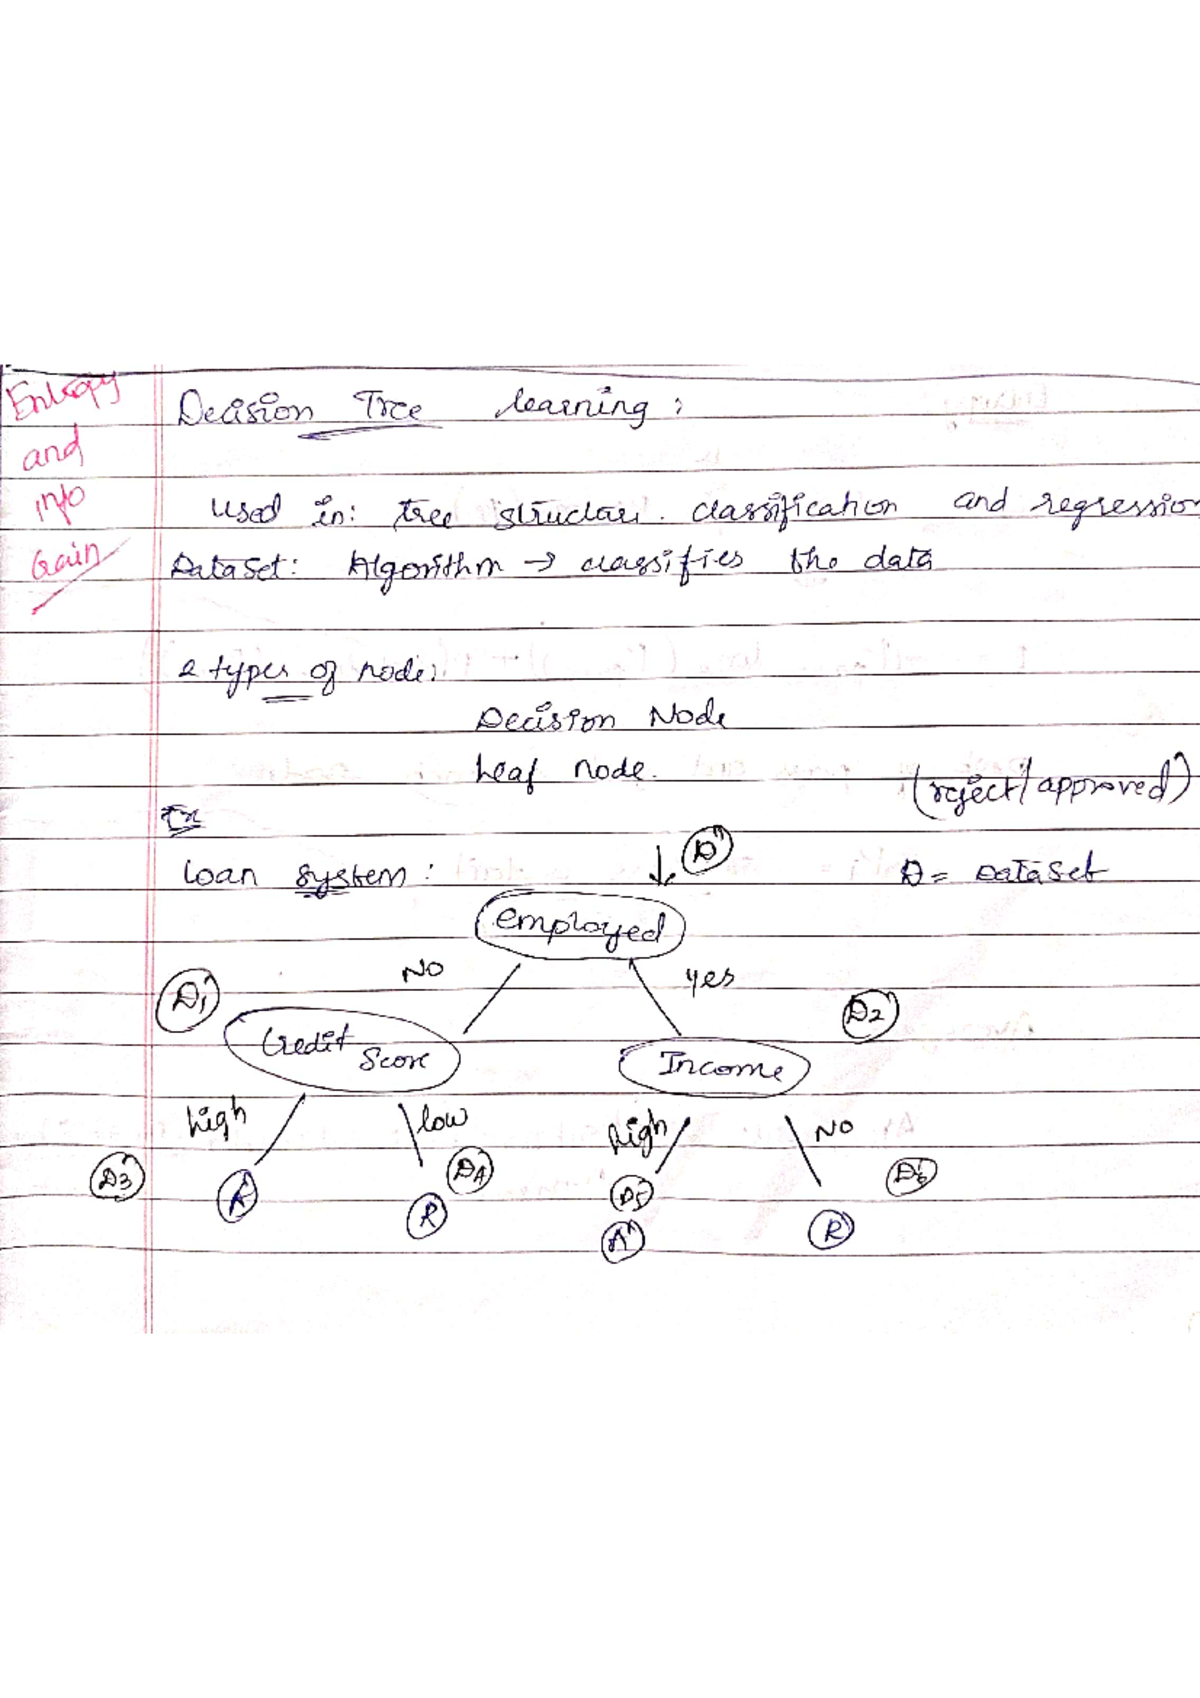 Entropy
and
info
Gain
Decision Tree learning:
Used in: tree structure. classification and regression
Dataset: Algorithm → classifies the data
2 types of node:
Decision Node
Leaf node.
(reject/approved)
Ex
Loan system:
D
D = Dataset
employed
NO
yes
D1
D2
Credit Score
Income
high
low
high
NO
D3
D4
D5
D6
A
R
A
R